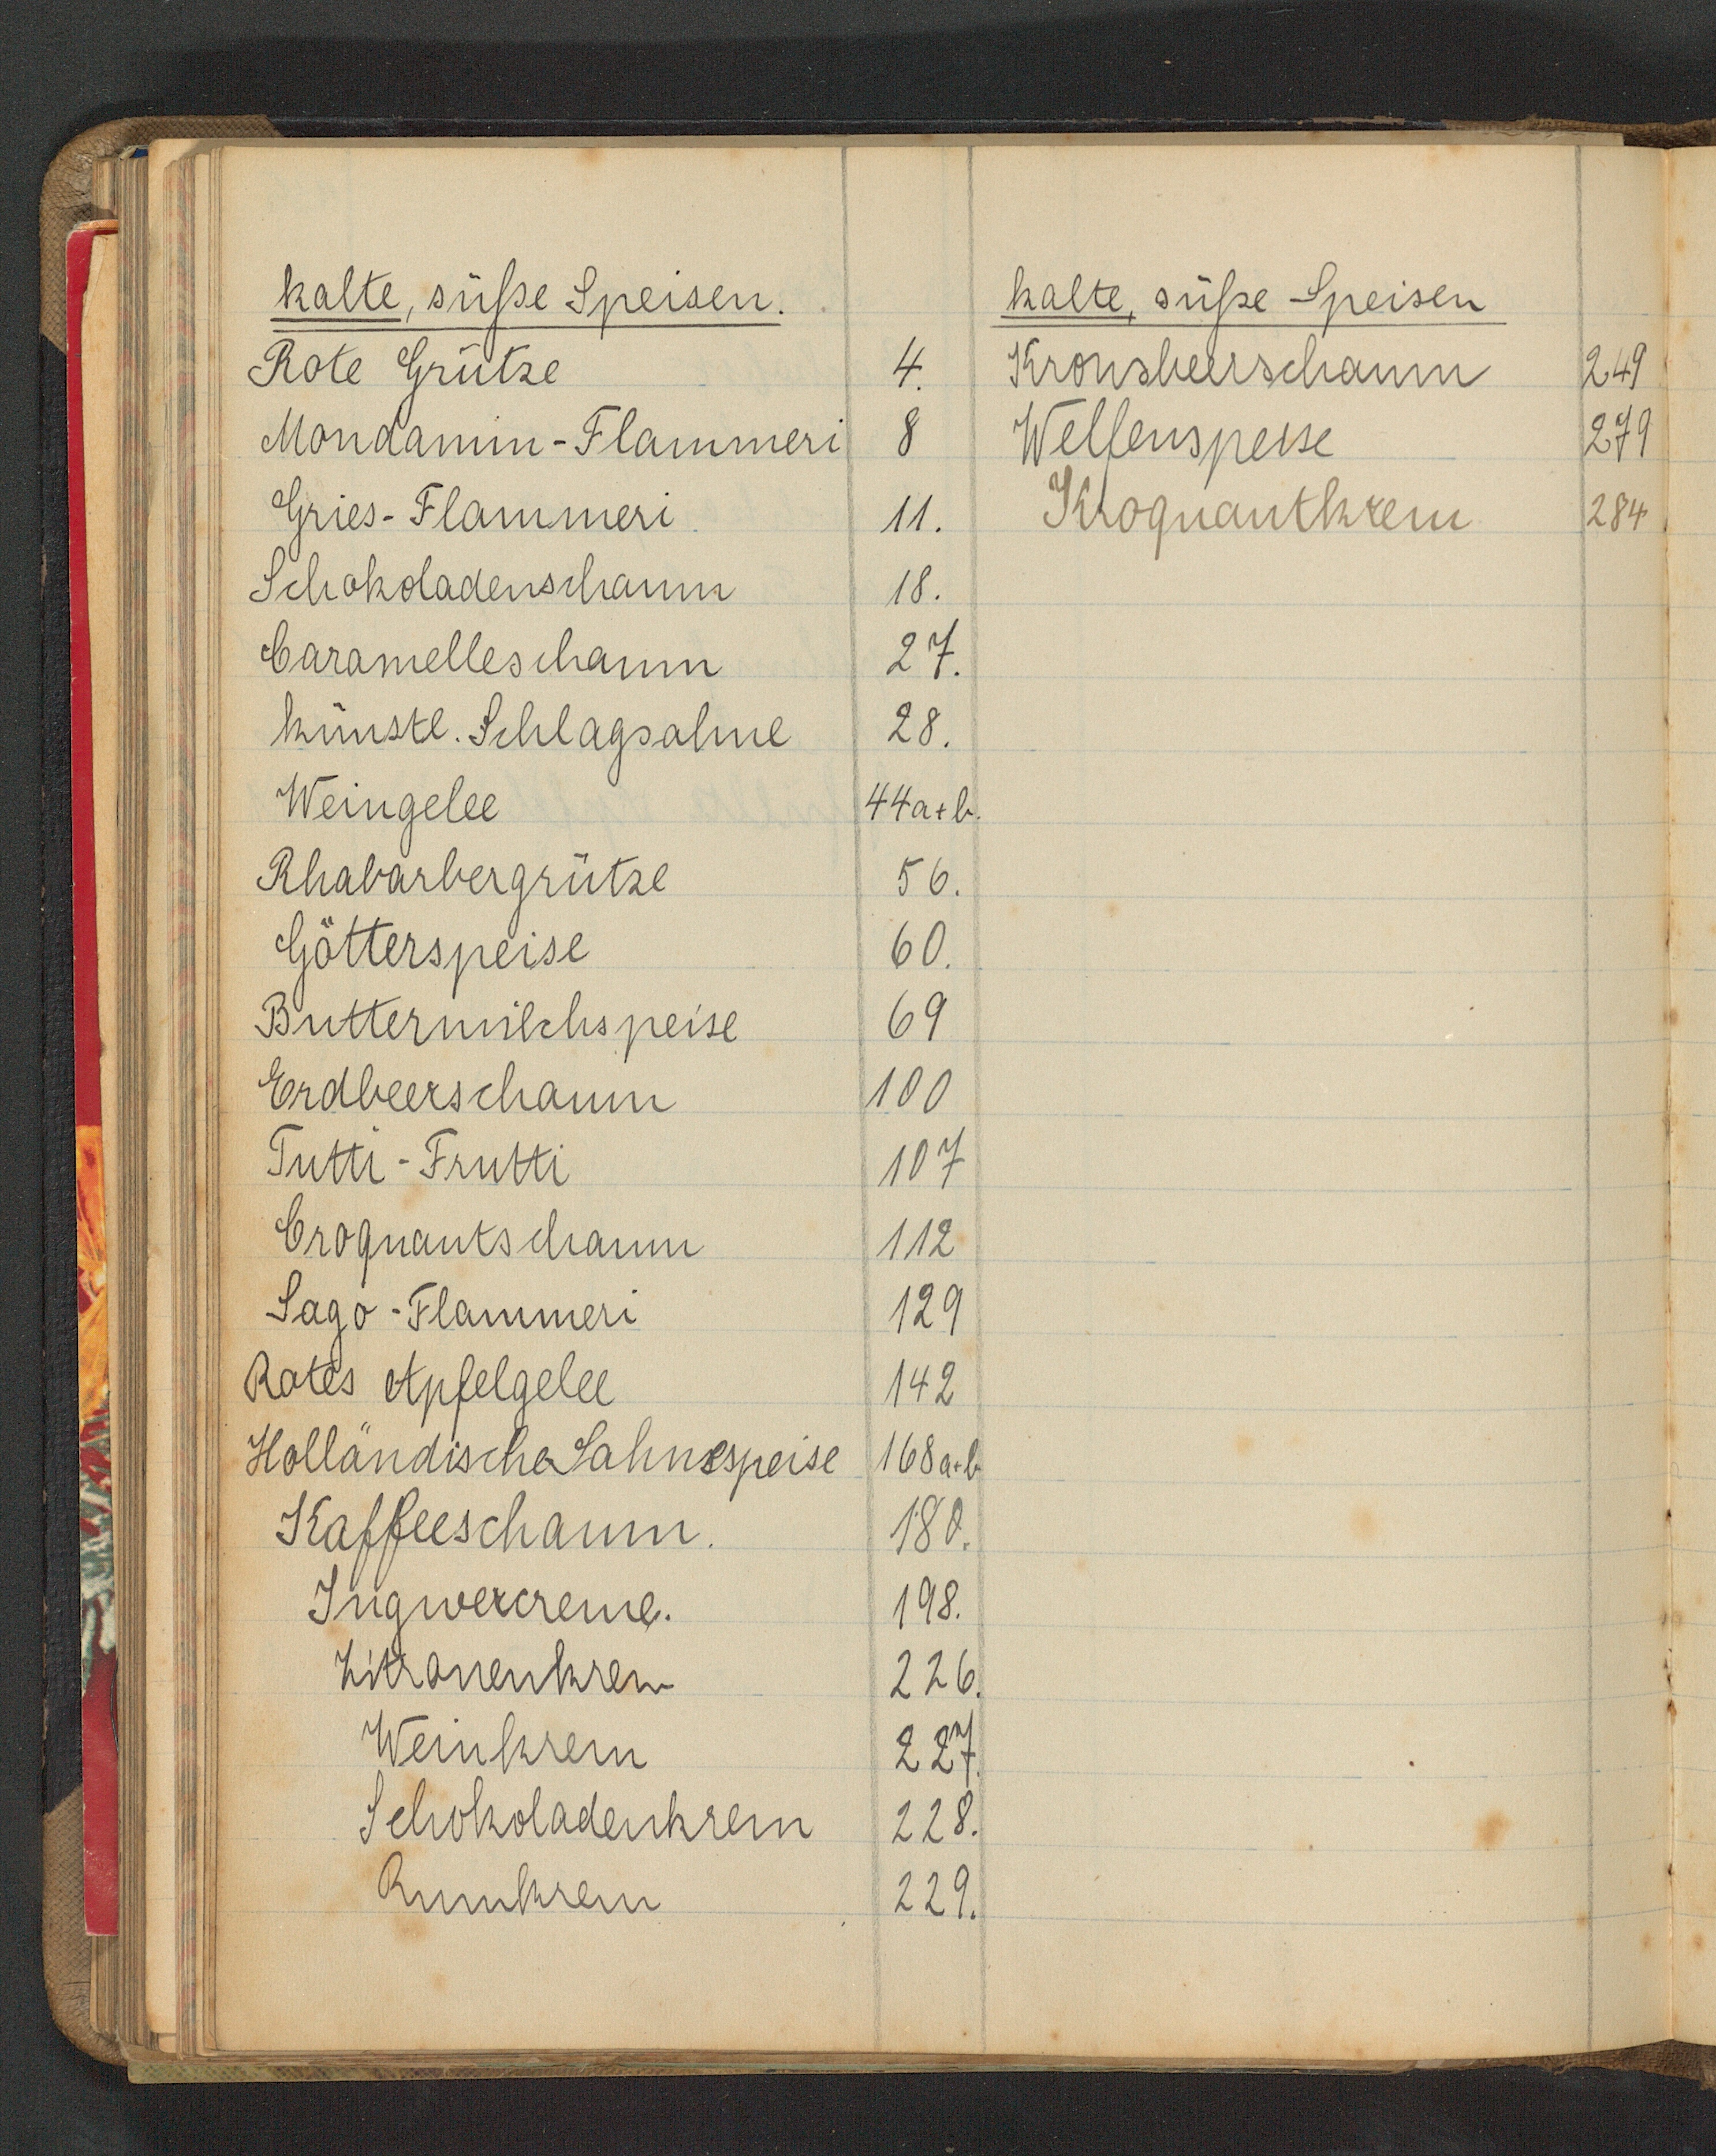 kalte, süße Speisen.
Rote Grütze 4.
Mondamin-Flammeri 8
Gries-Flammeri 11.
Schokoladenschaum 18.
Caramelleschaum 27.
künstl. Schlagsahne 28.
Weingelee 44a+b.
Rhabarbergrütze 56.
Götterspeise 60.
Buttermilchspeise 69
Erdbeerschaum 100
Tutti-Frutti 107
Croquantschaum 112
Sago-Flammeri 129
Rotes Apfelgelee 142
Holländische Sahnespeise 168a+b
Kaffeeschaum. 180.
Ingwercreme. 198.
Zitronenkrem 226.
Weinkrem 227.
Schokoladenkrem 228.
Rumkrem 229.
kalte, süße Speisen
Kronsbeerschaum 249
Welfenspeise 279
Kroquantkrem 284